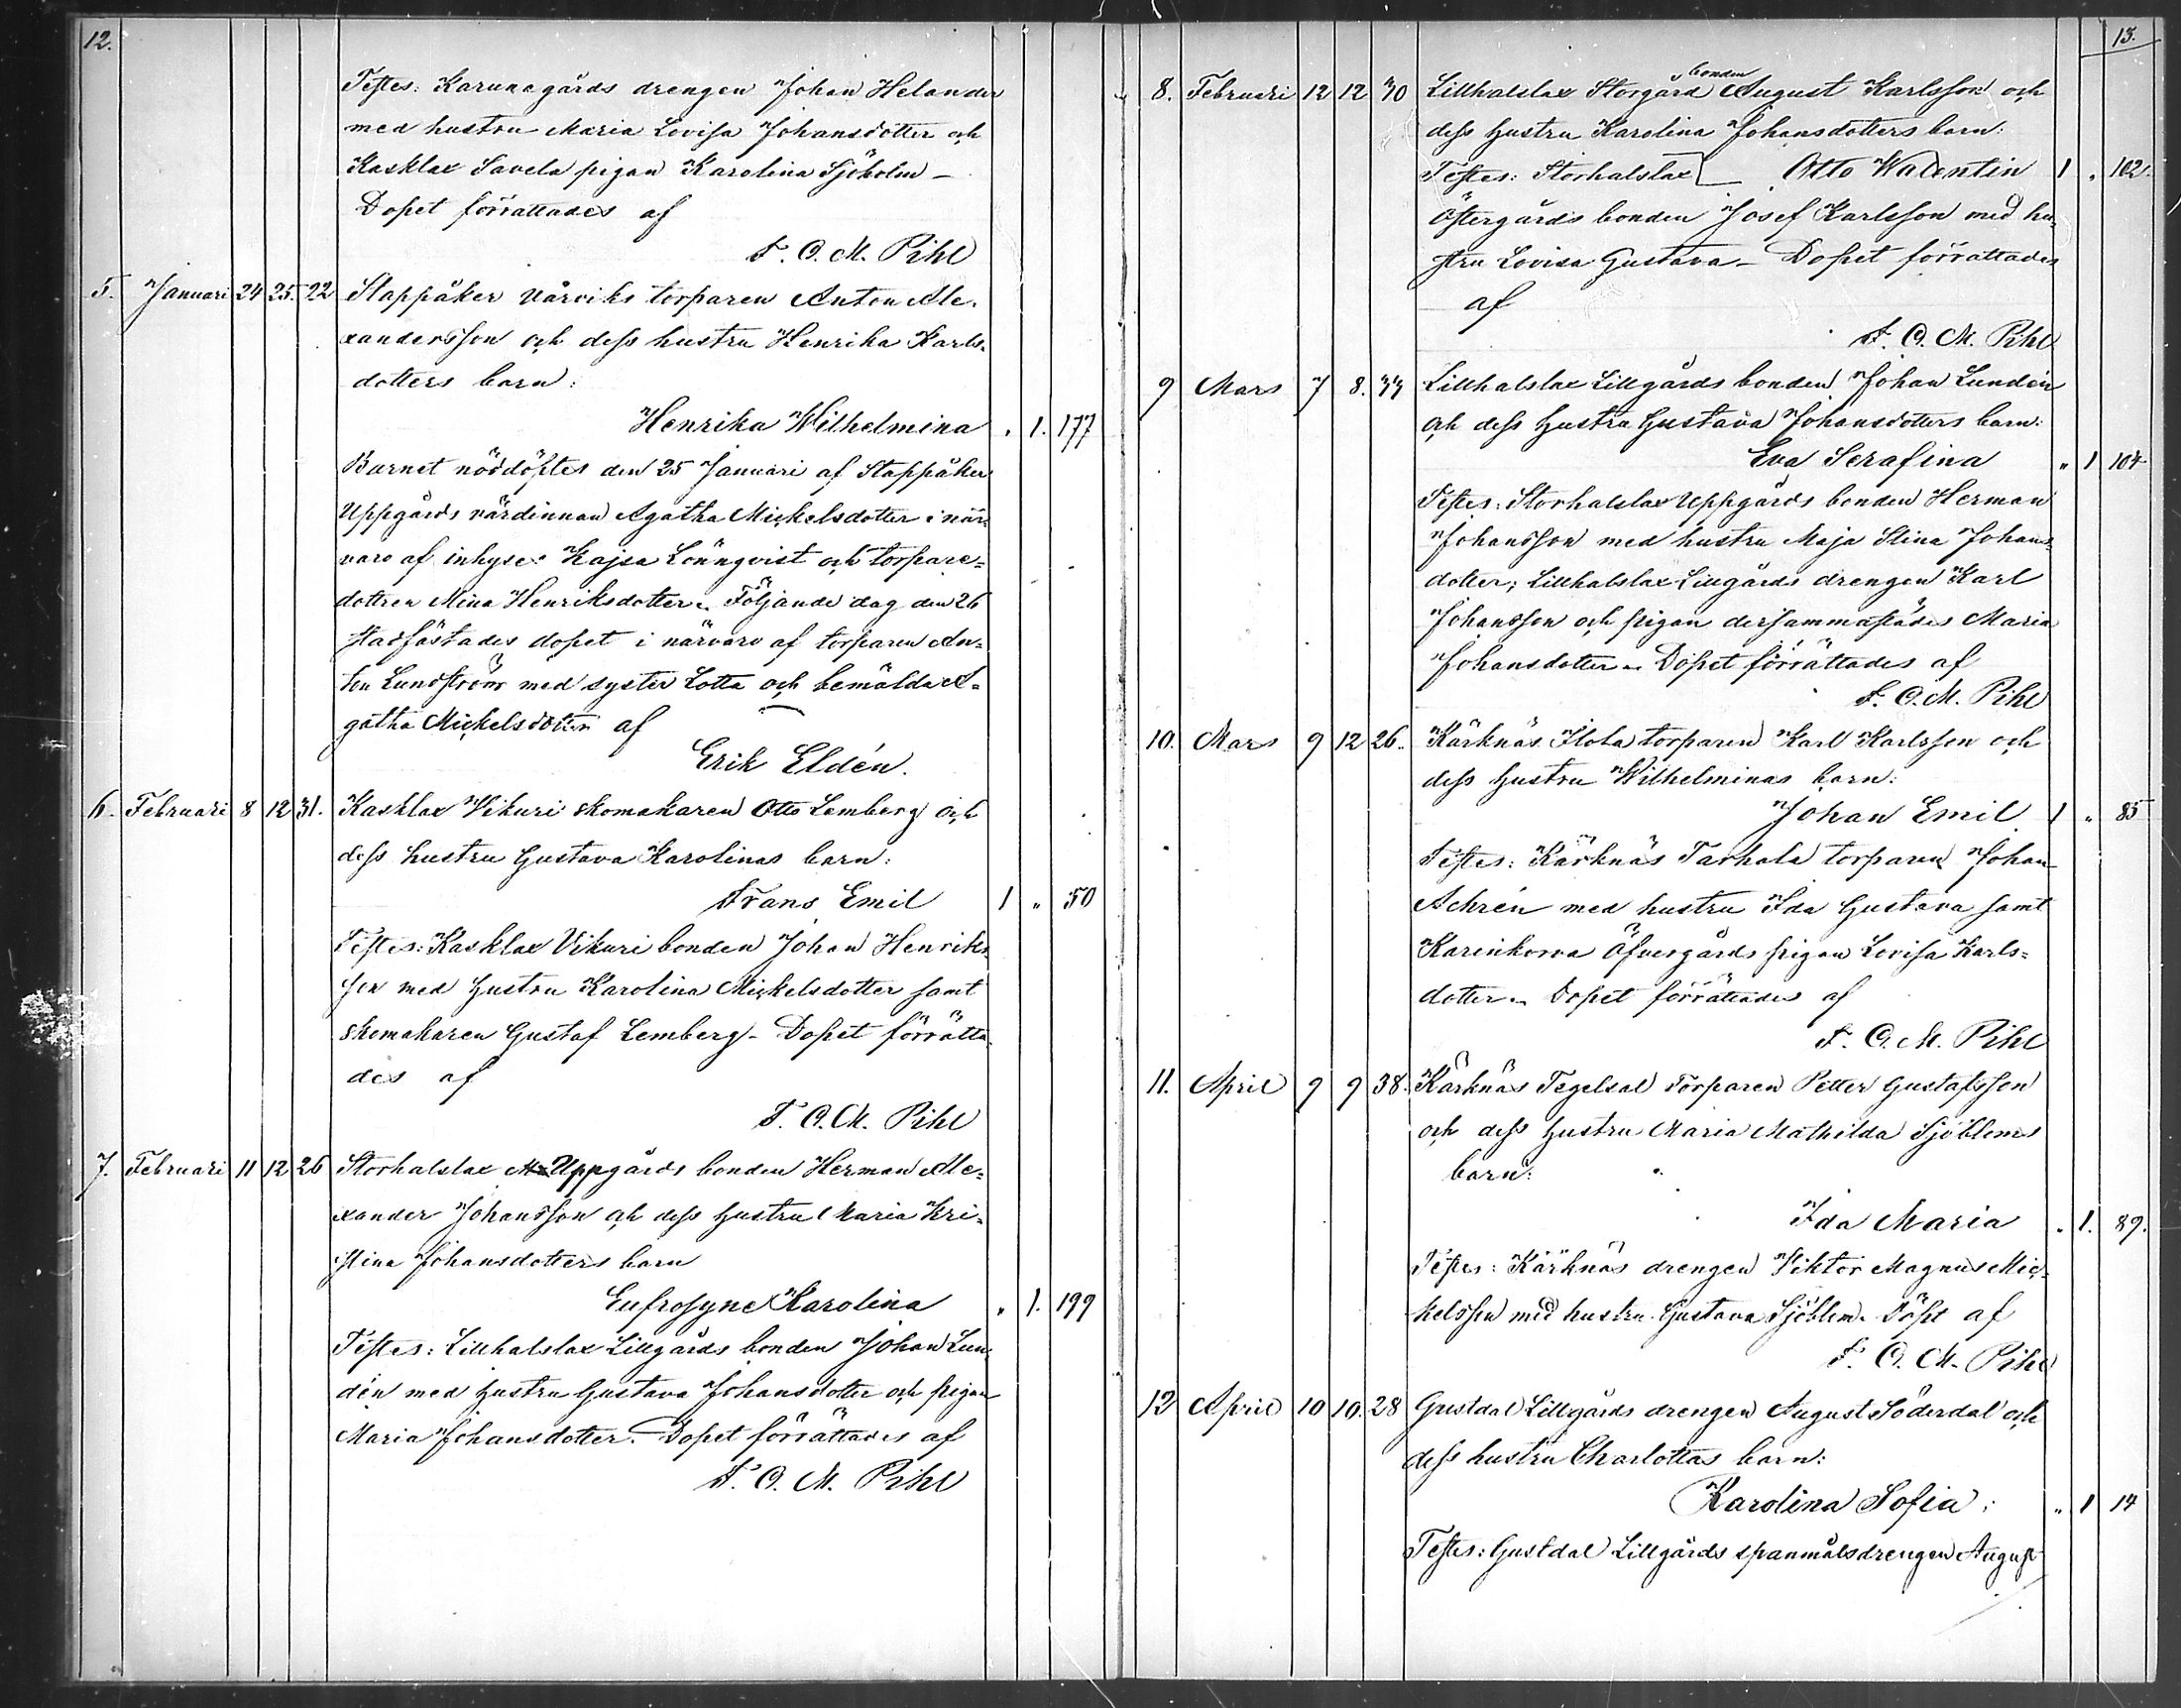 12.
Testes: Karunagårds drengen Johan Helander
med hustru Maria Lovisa Johansdotter och
Kasklax Savela pigan Karolina Sjöholm –
Dopet förrättades af
F. O. M. Pihl
5. Januari 24 25. 22 Stappåker Vårviks torparen Anton Ale-
xandersson och dess hustru Henrika Karls-
dotters barn:
Henrika Wilhelmina „ 1. 177
Barnet nöddöptes den 25 Januari af Stappåker
Uppgårds värdinnan Agatha Mickelsdotter i när-
varo af inhyse: Kajsa Lönnqvist och torpare-
dottren Mina Henriksdotter. Följande dag den 26
stadfästades dopet i närvaro af torparen An-
ton Lundström med syster Lotta och bemälda A-
gatha Mickelsdotter af
Erik Eldén.
6. Februari 8 12 31. Kasklax Vikuri skomakaren Otto Lemberg och
dess hustru Gustava Karolinas barn:
Frans Emil 1 „ 50
Testes: Kasklax Vikuri bonden Johan Henriks-
son med hustru Karolina Mickelsdotter samt
skomakaren Gustaf Lemberg – Dopet förrätta-
des af
F. O. M. Pihl
7. Februari 11 12 26 Storhalslax Uppgårds bonden Herman Ale-
xander Johansson och dess hustru Maria Kri-
stina Johansdotters barn
Eufrosyne Karolina „ 1. 199
Testes: Lillhalslax Lillgårds bonden Johan Lun-
dén med hustru Gustava Johansdotter och pigan
Maria Johansdotter. Dopet förrättades af
F. O. M. Pihl
13.
8. Februari 12 12 30 Lillhalslax Storgård bonden August Karlsson och
dess hustru Karolina Johansdotters barn:
Testes: Storhalslax Otto Walentin 1 „ 102.
Östergårds bonden Josef Karlsson med hu-
stru Lovisa Gustava – Dopet förrättades
af
F. O. M. Pihl
9 Mars 7 8. 33 Lillhalslax Lillgårds bonden Johan Lundén
och dess hustru Gustava Johansdotters barn:
Eva Serafina „ 1 104
Testes: Storhalslax Uppgårds bonden Herman
Johansson med hustru Maja Stina Johans-
dotter; Lillhalslax Lillgårds drengen Karl
Johansson och pigan dersammastädes Maria
Johansdotter. Dopet förrättades af
F. O. M. Pihl
10. Mars 9 12 26. Kärknäs Flota torparen Karl Karlsson och
dess hustru Wilhelminas barn:
Johan Emil 1 „ 85
Testes: Kärknäs Tarhala torparen Johan
Achrén med hustru Ida Gustava samt
Karinkorva Öfvergårds pigan Lovisa Karls-
dotter. Dopet förrättades af
F. O. M. Pihl
11. April 9 9 38. Kärknäs Tegelsal torparen Petter Gustafsson
och dess hustru Maria Mathilda Sjöbloms
barn:
Ida Maria „ 1. 89.
Testes: Kärknäs drengen Viktor Magnus Mic-
kelsson med hustru Gustava Sjöblom. Döpt af
F. O. M. Pihl
12 April 10 10. 28 Gustdal Lillgårds drengen August Söderdal och
dess hustru Charlottas barn:
Karolina Sofia: „ 1 14
Testes: Gustdal Lillgårds spanmålsdrengen August